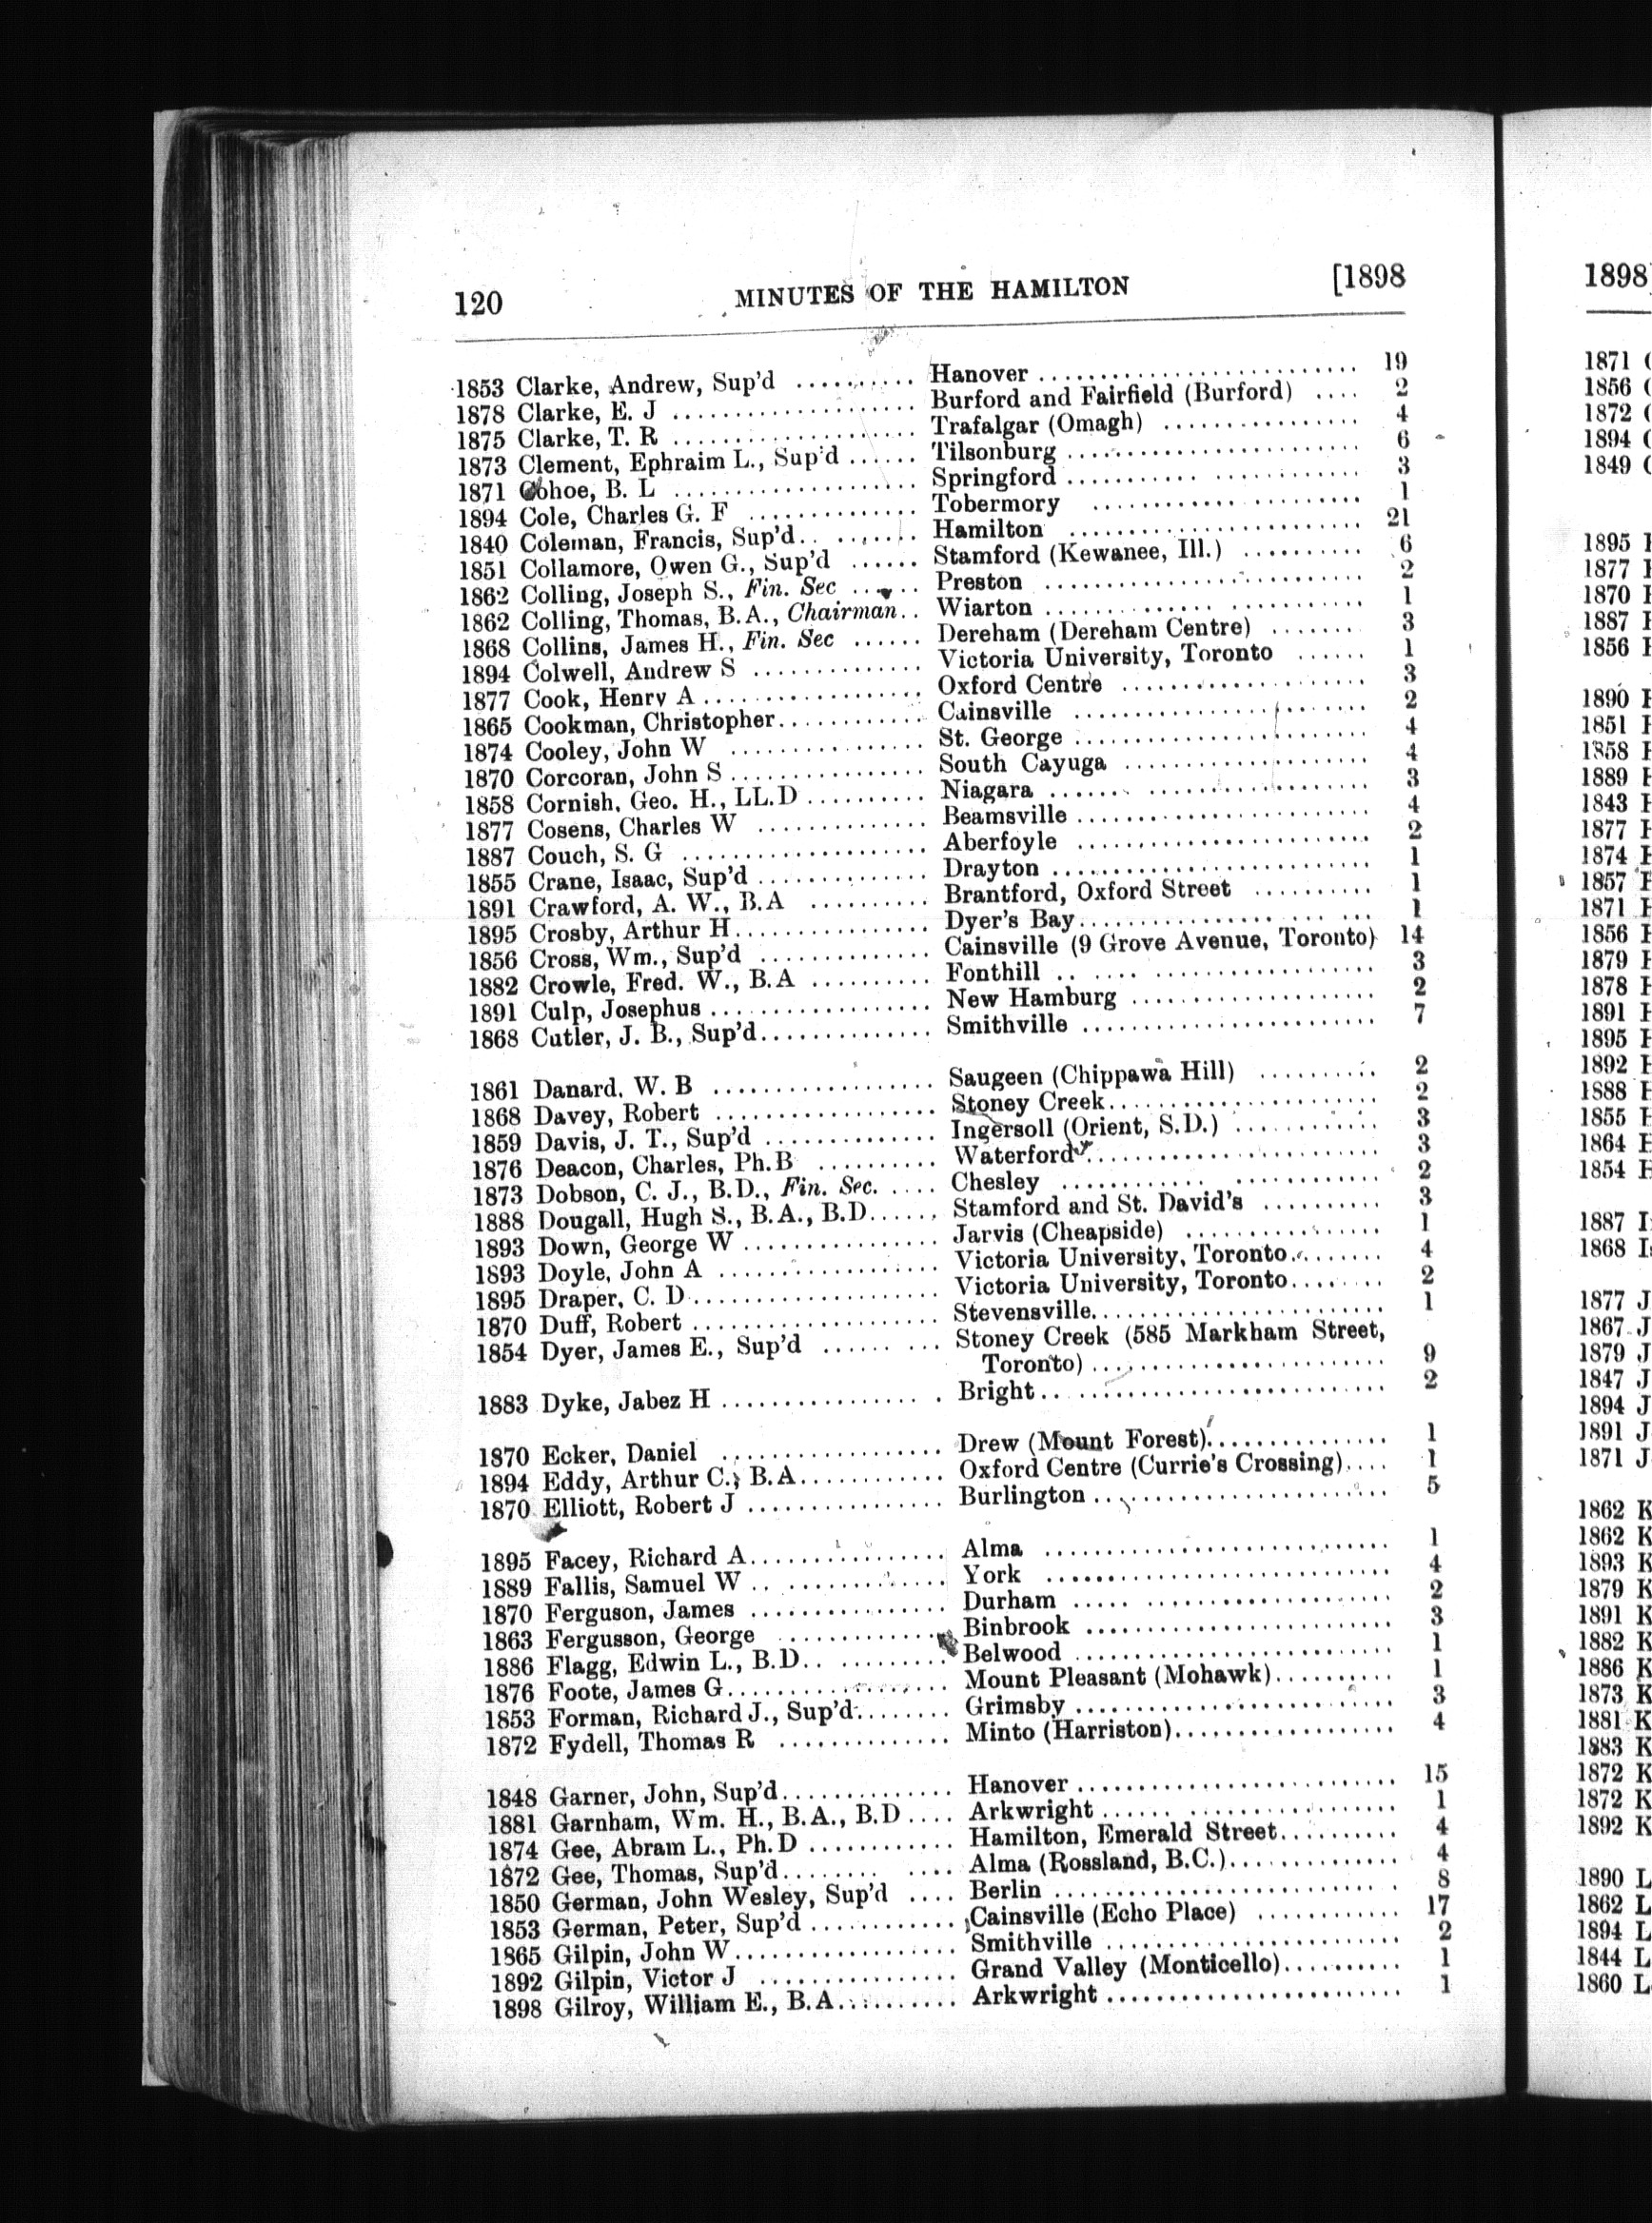 120 MINUTES OF THE HAMILTON [1898
1853 Clarke, Andrew, Sup'd .......... Hanover .......... 19
1878 Clarke, E. J .......... Burford and Fairfield (Burford) .... 2
1875 Clarke, T. R .......... Trafalgar (Omagh) .......... 4
1873 Clement, Ephraim L., Sup'd ...... Tilsonburg .......... 6
1871 Cohoe, B. L .......... Springford .......... 3
1894 Cole, Charles G. F .......... Tobermory .......... 1
1840 Coleman, Francis, Sup'd .......... Hamilton .......... 21
1851 Collamore, Owen G., Sup'd ...... Stamford (Kewanee, Ill.) .......... 6
1862 Colling, Joseph S., Fin. Sec ...... Preston .......... 2
1862 Colling, Thomas, B.A., Chairman.. Wiarton .......... 1
1868 Collins, James H., Fin. Sec ...... Dereham (Dereham Centre) ........ 3
1894 Colwell, Andrew S .......... Victoria University, Toronto ...... 1
1877 Cook, Henry A .......... Oxford Centre .......... 3
1865 Cookman, Christopher .......... Cainsville .......... 2
1874 Cooley, John W .......... St. George .......... 4
1870 Corcoran, John S .......... South Cayuga .......... 4
1858 Cornish, Geo. H., LL.D .......... Niagara .......... 3
1877 Cosens, Charles W .......... Beamsville .......... 4
1887 Couch, S. G .......... Aberfoyle .......... 2
1855 Crane, Isaac, Sup'd .......... Drayton .......... 1
1891 Crawford, A. W., B.A .......... Brantford, Oxford Street .......... 1
1895 Crosby, Arthur H .......... Dyer's Bay .......... 1
1856 Cross, Wm., Sup'd .......... Cainsville (9 Grove Avenue, Toronto) 14
1882 Crowle, Fred. W., B.A .......... Fonthill .......... 3
1891 Culp, Josephus .......... New Hamburg .......... 2
1868 Cutler, J. B., Sup'd .......... Smithville .......... 7
1861 Danard, W. B .......... Saugeen (Chippawa Hill) .......... 2
1868 Davey, Robert .......... Stoney Creek .......... 2
1859 Davis, J. T., Sup'd .......... Ingersoll (Orient, S.D.) .......... 3
1876 Deacon, Charles, Ph.B .......... Waterford .......... 3
1873 Dobson, C. J., B.D., Fin. Sec. .... Chesley .......... 2
1888 Dougall, Hugh S., B.A., B.D ...... Stamford and St. David's .......... 3
1893 Down, George W .......... Jarvis (Cheapside) .......... 1
1893 Doyle, John A .......... Victoria University, Toronto ........ 4
1895 Draper, C. D .......... Victoria University, Toronto ........ 2
1870 Duff, Robert .......... Stevensville .......... 1
1854 Dyer, James E., Sup'd .......... Stoney Creek (585 Markham Street,
Toronto) .......... 9
1883 Dyke, Jabez H .......... Bright .......... 2
1870 Ecker, Daniel .......... Drew (Mount Forest) .......... 1
1894 Eddy, Arthur C., B.A .......... Oxford Centre (Currie's Crossing) .... 1
1870 Elliott, Robert J .......... Burlington .......... 5
1895 Facey, Richard A .......... Alma .......... 1
1889 Fallis, Samuel W .......... York .......... 4
1870 Ferguson, James .......... Durham .......... 2
1863 Fergusson, George .......... Binbrook .......... 3
1886 Flagg, Edwin L., B.D .......... Belwood .......... 1
1876 Foote, James G .......... Mount Pleasant (Mohawk) .......... 1
1853 Forman, Richard J., Sup'd ........ Grimsby .......... 3
1872 Fydell, Thomas R .......... Minto (Harriston) .......... 4
1848 Garner, John, Sup'd .......... Hanover .......... 15
1881 Garnham, Wm. H., B.A., B.D .... Arkwright .......... 1
1874 Gee, Abram L., Ph.D .......... Hamilton, Emerald Street .......... 4
1872 Gee, Thomas, Sup'd .......... Alma (Rossland, B.C.) .......... 4
1850 German, John Wesley, Sup'd .... Berlin .......... 8
1853 German, Peter, Sup'd .......... Cainsville (Echo Place) .......... 17
1865 Gilpin, John W .......... Smithville .......... 2
1892 Gilpin, Victor J .......... Grand Valley (Monticello) .......... 1
1898 Gilroy, William E., B.A .......... Arkwright .......... 1
1898]
1871
1856
1872
1894
1849
1895
1877
1870
1887
1856
1890
1851
1858
1889
1843
1877
1874
1857
1871
1856
1879
1878
1891
1895
1892
1888
1855
1864
1854
1887
1868
1877 J
1867 J
1879 J
1847 J
1894 J
1891 J
1871 J
1862 K
1862 K
1893 K
1879 K
1891 K
1882 K
1886 K
1873 K
1881 K
1883 K
1872 K
1872 K
1892 K
1890 L
1862 L
1894 L
1844 L
1860 L